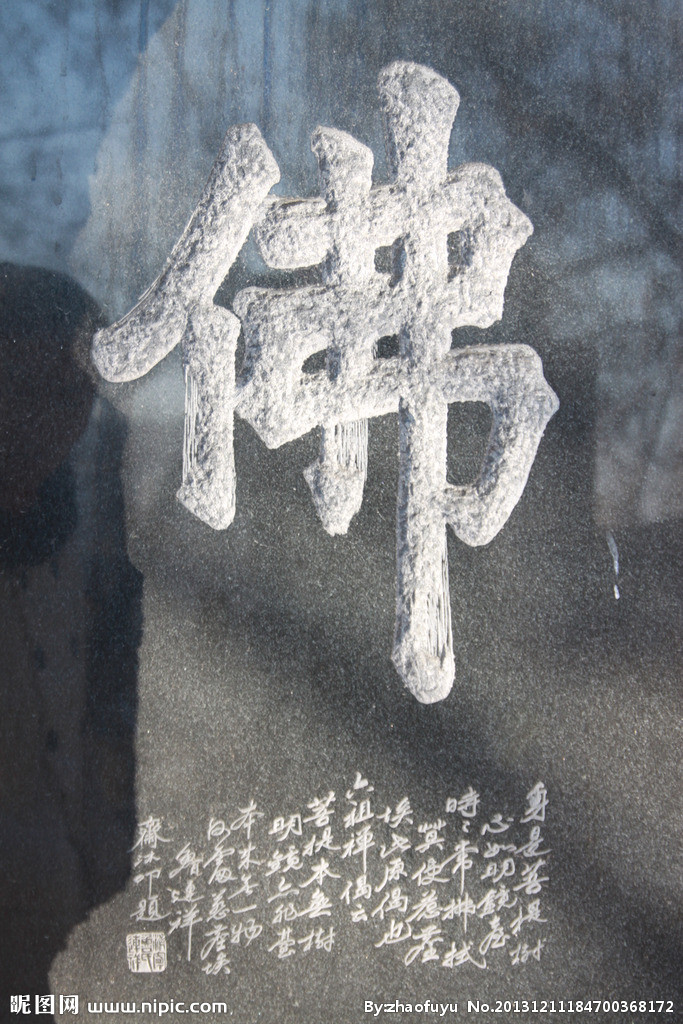 佛
身是菩提樹
心如明鏡臺
時〻常拂拭
莫使惹塵
埃此原偈也
六祖禪偈云
菩提本無樹
明鏡亦非臺
本來無一物
何處惹塵埃
齋沐叩題
昵图网 www.nipic.com
By:zhaofuyu No.20131211184700368172